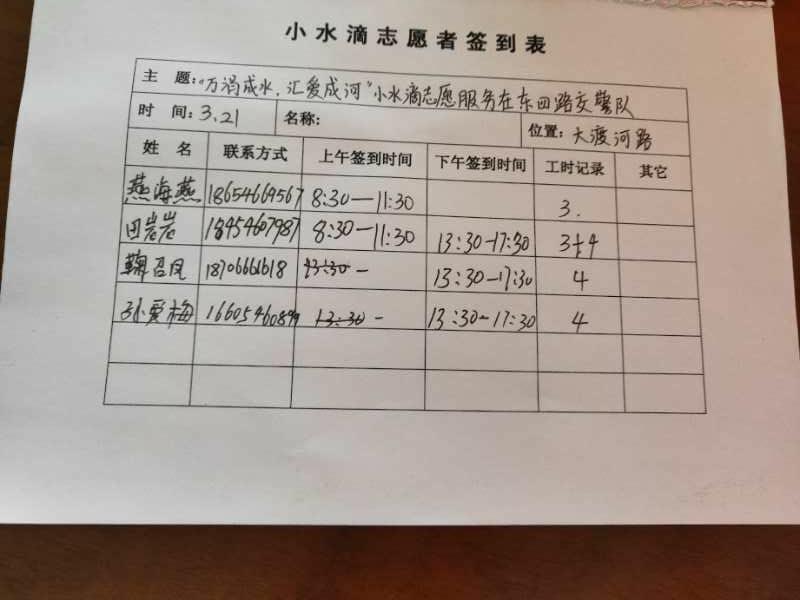 小水滴志愿者签到表
主 题：“万涓成水，汇爱成河”小水滴志愿服务在东四路交警队
时 间：3.21 名称： 位置：大渡河路
姓 名 联系方式 上午签到时间 下午签到时间 工时记录 其它
燕海燕 18654669567 8:30—11:30 3.
田岩岩 18454607987 8:30—11:30 13:30-17:30 3+4
鞠召凤 18706661618 13:30- 13:30-17:30 4
孙爱梅 13:30- 13:30-17:30 4